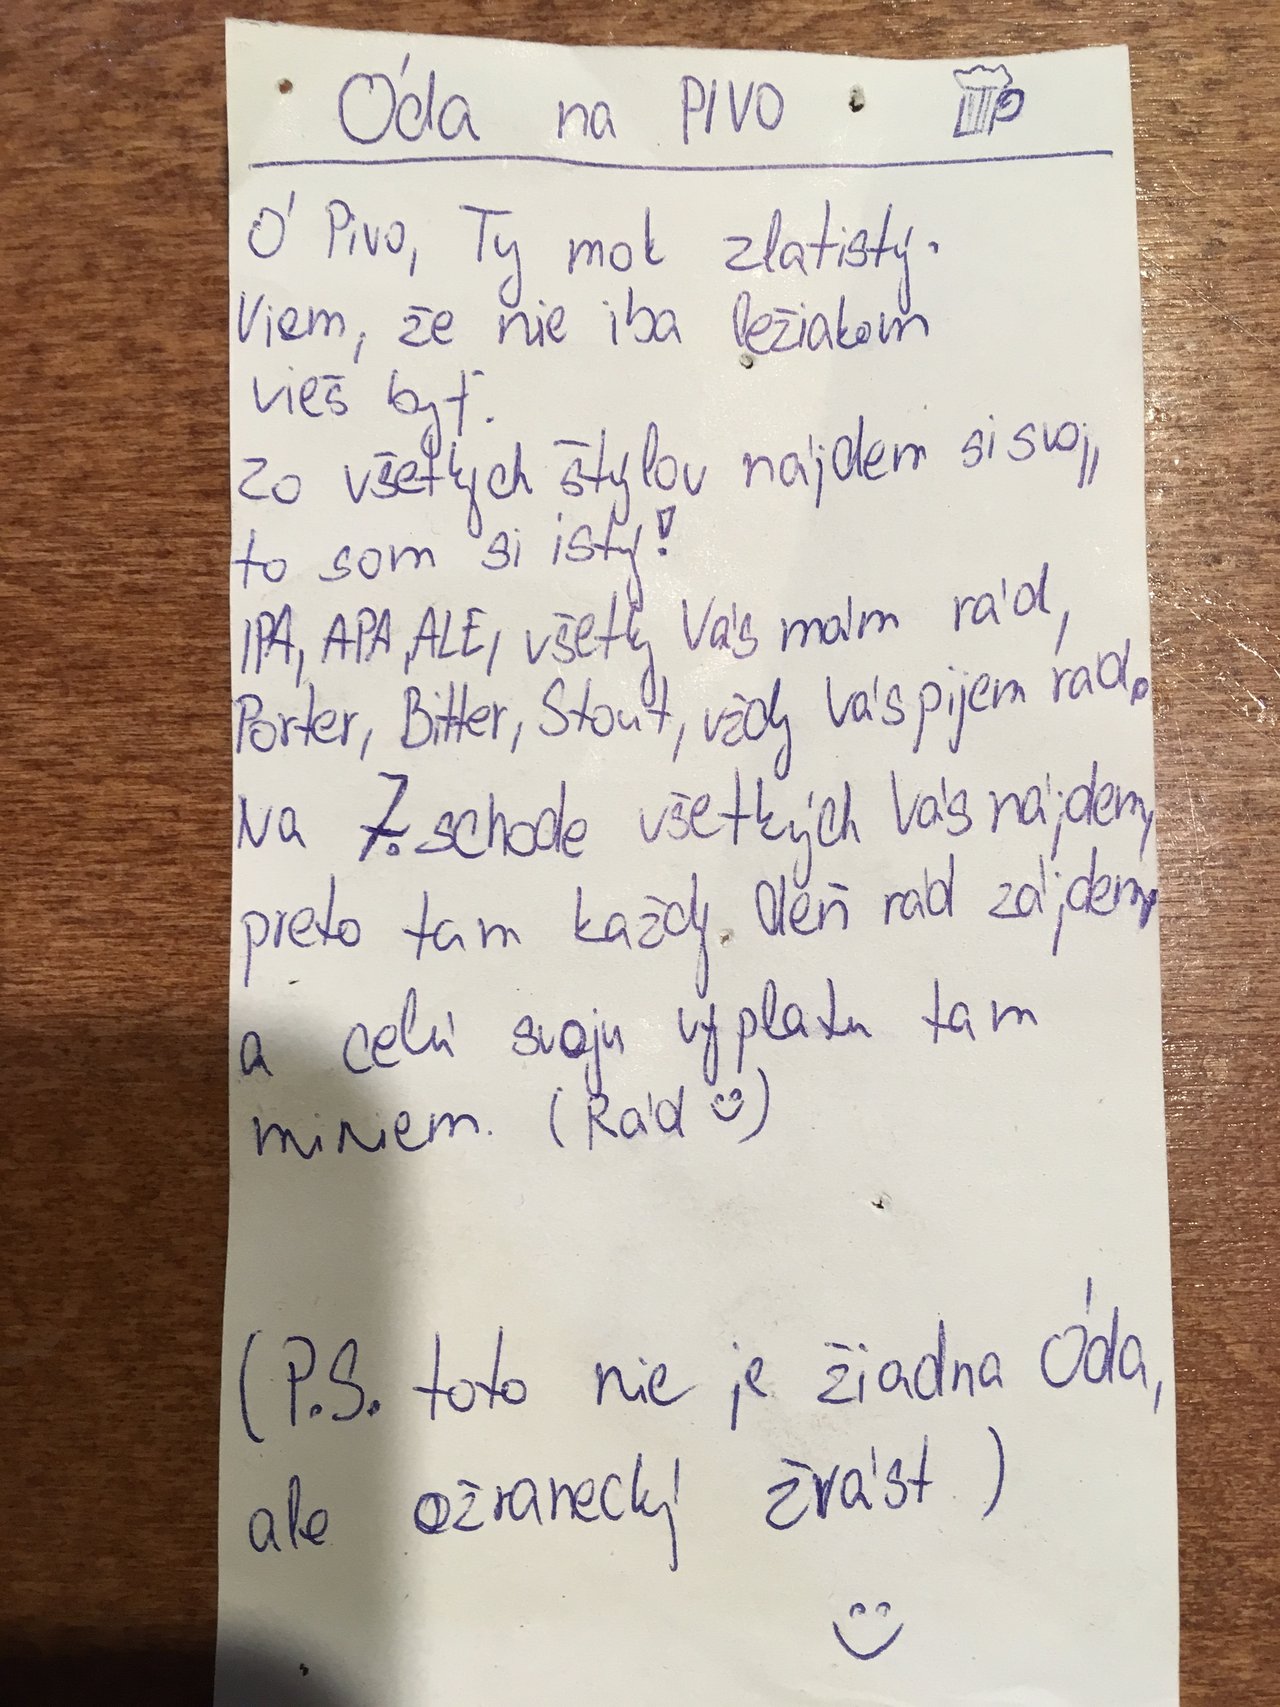 Óda na PIVO
Ó Pivo, Ty mok zlatistý.
Viem, že nie iba ležiakom
vieš byť.
Zo všetkých štýlov nájdem si svoj,
to som si istý!
IPA, APA, ALE, všetky Vás mám rád,
Porter, Bitter, Stout, vždy Vás pijem rád.
Na 7. schode všetkých Vás nájdem,
preto tam každý deň rád zájdem,
a celú svoju výplatu tam
miniem. (Rád)
(P.S. toto nie je žiadna Óda,
ale ožranecký žvást)